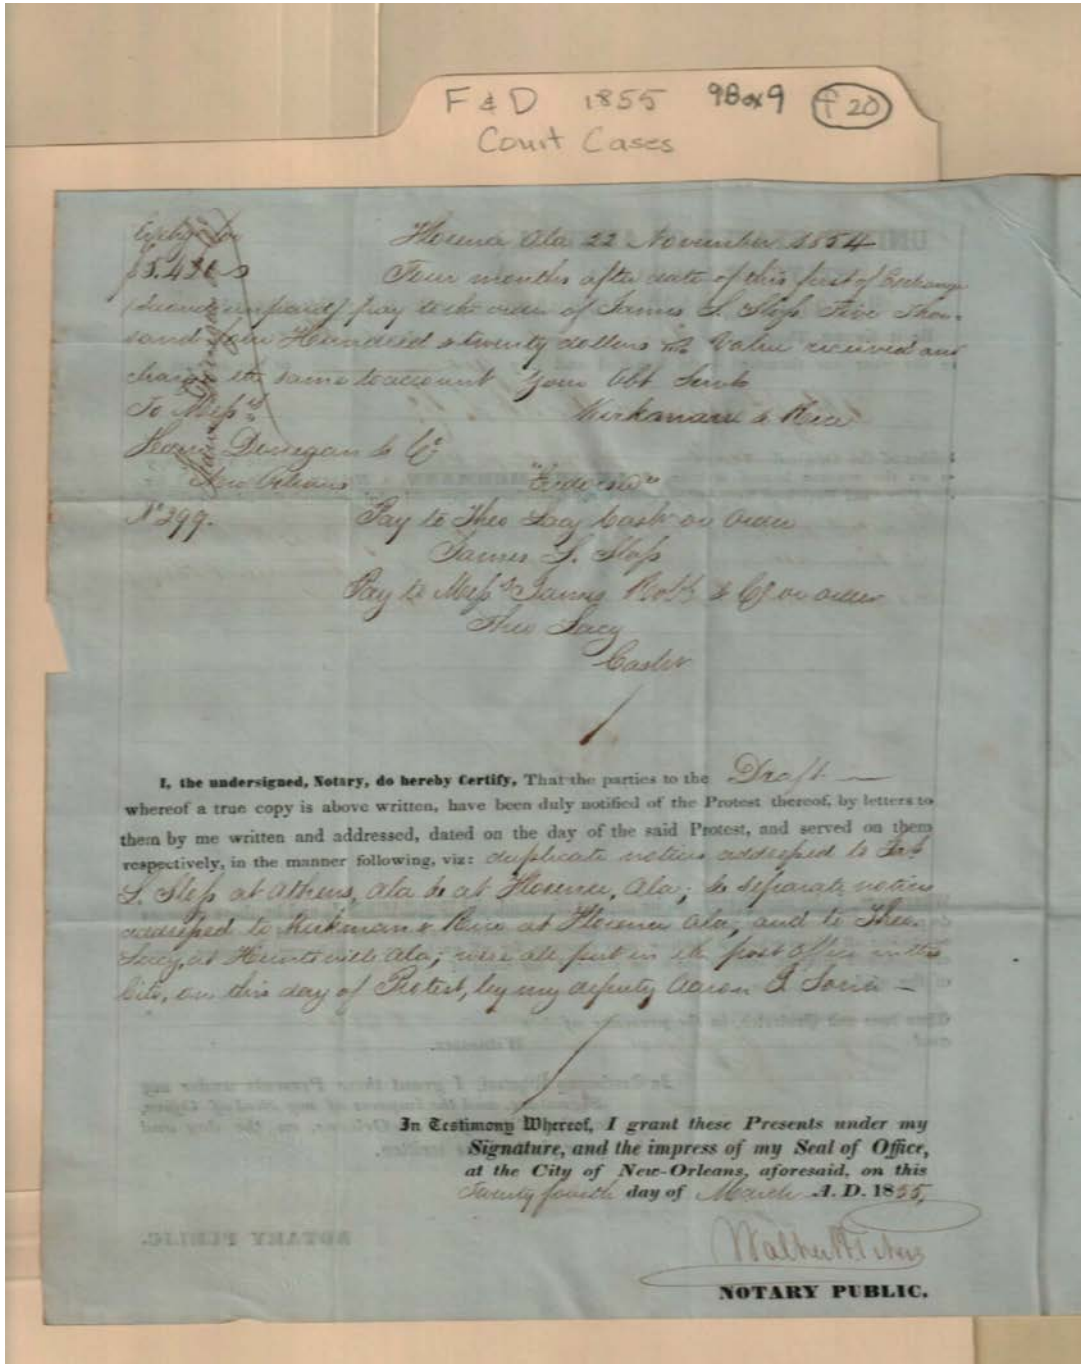 F & D 1855 9Box9 f20
Court Cases
Exchge for Florence Ala 22 November 1854
$5.420 Four months after date of this first of Exchange
(Second unpaid) pay to the order of James L. Sloss Five Thou-
sand four Hundred & twenty dollars Value received and
charge the same to account Your Obt Servts
To Messrs Kirkman & Rice
Donegan & Co
New Orleans "Endorsed"
No 299. Pay to Theo Lacy Cashr or Order
James L. Sloss
Pay to Messrs James Robb & Co or order
Theo Lacy
Cashr
I, the undersigned, Notary, do hereby Certify, That the parties to the Draft
whereof a true copy is above written, have been duly notified of the Protest thereof, by letters to
them by me written and addressed, dated on the day of the said Protest, and served on them
respectively, in the manner following, viz: duplicate notices addressed to Jas
L. Sloss at Athens, Ala & at Florence, Ala; & separate notices
addressed to Kirkman & Rice at Florence Ala, and to Theo.
Lacy, at Huntsville Ala; were all put in the post Office in this
City, on this day of Protest, by my deputy Aaron
In Testimony Whereof, I grant these Presents under my
Signature, and the impress of my Seal of Office,
at the City of New-Orleans, aforesaid, on this
Twenty fourth day of March A. D. 1855,
NOTARY PUBLIC.